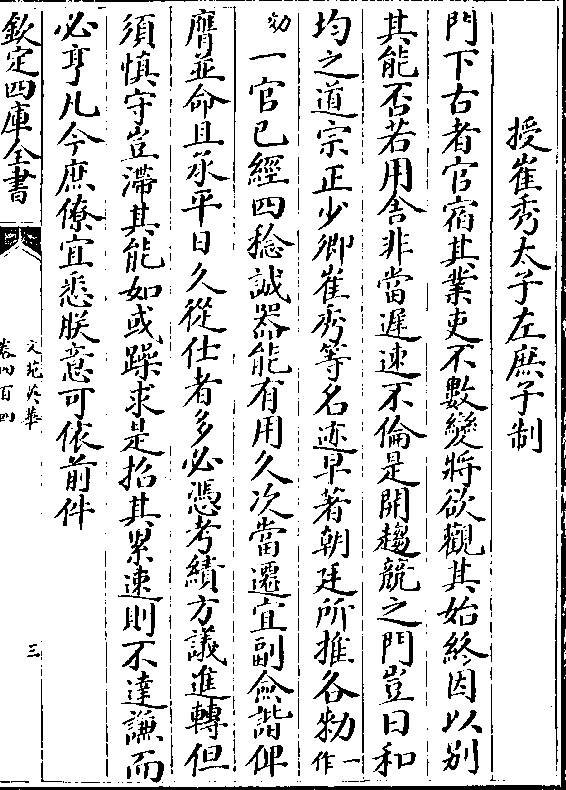 授崔秀太子左庶子制
門下古者官宿其業吏不數變將欲觀其始終因以别
其能否若用舍非當遲速不倫是開趨競之門豈曰和
均之道宗正少卿崔秀等名迹早著朝廷所推各勑一作
効一官已經四稔誠器能有用久次當遷宜副僉諧俾
膺並命且承平日久從仕者多必憑考績方議進轉但
須慎守豈滯其能如或躁求是招其累速則不達謙而
必亨凡今庶僚宜悉朕意可依前件
欽定四庫全書
文苑英華
卷四百四
三